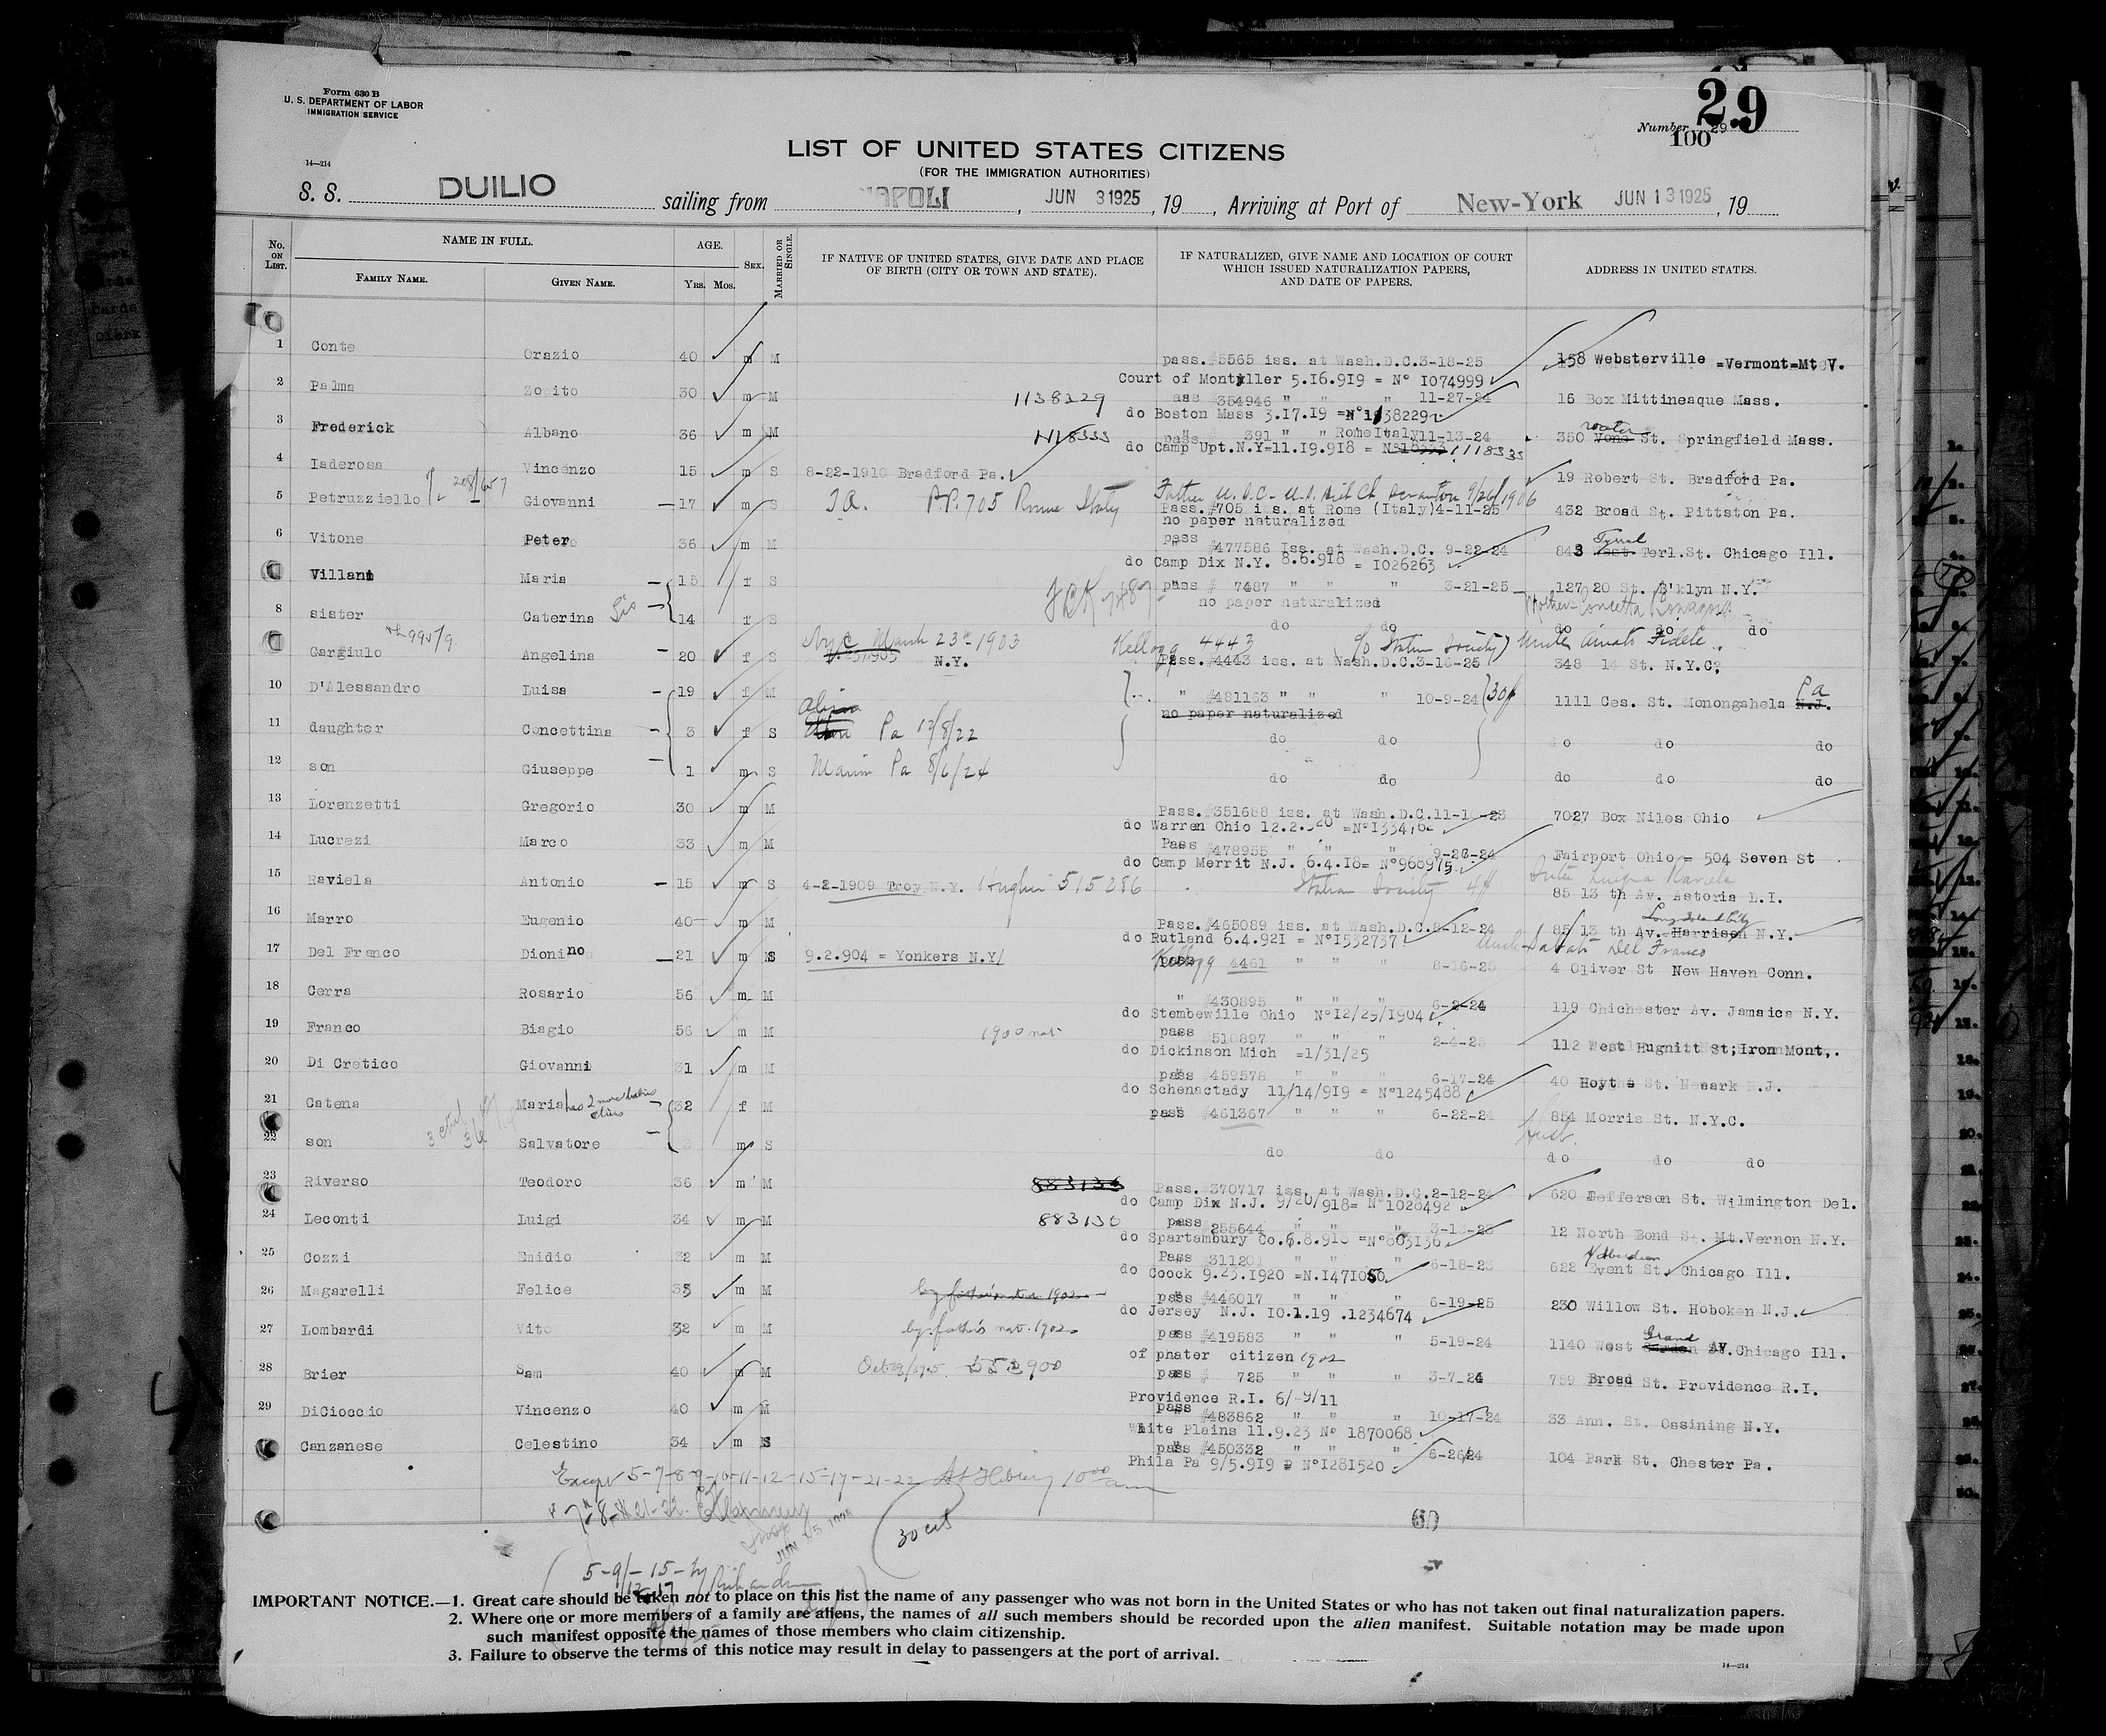 Form 630 B
U. S. DEPARTMENT OF LABOR
IMMIGRATION SERVICE
29
Number 29
100
14—214
LIST OF UNITED STATES CITIZENS
(FOR THE IMMIGRATION AUTHORITIES)
S. S. DUILIO sailing from NAPOLI, JUN 3 1925, 19 , Arriving at Port of New-York JUN 13 1925, 19
No. ON LIST. NAME IN FULL. AGE. SEX. MARRIED OR SINGLE. IF NATIVE OF UNITED STATES, GIVE DATE AND PLACE OF BIRTH (CITY OR TOWN AND STATE). IF NATURALIZED, GIVE NAME AND LOCATION OF COURT WHICH ISSUED NATURALIZATION PAPERS, AND DATE OF PAPERS. ADDRESS IN UNITED STATES.
FAMILY NAME. GIVEN NAME. YRS. MOS.
1 Conte Orazio 40 m M pass. #5565 iss. at Wash.D.C.3-18-25 158 Websterville =Vermont=Mt V.
Court of Montpller 5.16.919 = N° 1074999
2 Palma Zonito 30 m M 1138229 pass 354946 " " " 11-27-24 16 Box Mittineaque Mass.
do Boston Mass 3.17.19 =N°1138229
3 Frederick Albano 36 m M 1118333 pass 391 " " Rome Italy 11-13-24 350 St. Springfield Mass.
do Camp Upt.N.Y=11.19.918 = 1118333
4 Iaderosa Vincenzo 15 m S 8-22-1910 Bradford Pa. 19 Robert St. Bradford Pa.
5 Petruzziello Giovanni 17 m S P.P. 705 Rome Italy Father U.S.C. - U.S. Dist Ct Scranton 9/26/1906
Pass.#705 iss. at Rome (Italy)4-11-25 432 Broad St. Pittston Pa.
no paper naturalized
6 Vitone Peter 36 m M pass #477586 Iss. at Wash.D.C. 9-22-24 843 Terl.St. Chicago Ill.
do Camp Dix N.Y. 8.6.918 = 1026263
Villani Maria 15 f S pass # 7487 " " " 3-21-25 127 20 St. B'klyn N.Y.
no paper naturalized
8 sister Caterina Sis 14 f S do do do do do
9 Gargiulo Angelina 20 f S Nyc March 23rd-1903 N.Y. Kellogg 4443 (c/o Italian Society)
Pass.#4443 iss. at Wash.D.C.3-16-25 348 14 St. N.Y.C.
10 D'Alessandro Luisa 19 f M " #481163 " " " 10-9-24 1111 Ces. St. Monongahela Pa N.J.
no paper naturalized
11 daughter Concettina 3 f S Pa 12/8/22 do do do do do
12 son Giuseppe 1 m S Pa 8/6/24 do do do do do
13 Lorenzetti Gregorio 30 m M Pass.#351688 iss. at Wash.D.C. 7027 Box Niles Ohio
do Warren Ohio
14 Lucrezi Marco 33 m M Pass #478955 " " " 9-26-24 Fairport Ohio = 504 Seven St
do Camp Merrit N.J. 6.4.18= N°968975
15 Raviela Antonio 15 m S 4-2-1909 Troy N.Y. Hughes 515286 Italian Society 85 13 th Av. Astoria L.I.
16 Marro Eugenio 40 m M Pass.#465089 iss. at Wash.D.C.8-12-24 85 13 th Av. Long Island City Harrison N.Y.
do Rutland 6.4.921 = N°1532737
17 Del Franco Dionino 21 m S 9.2.904 = Yonkers N.Y/ Kellogg 4461 " " " 8-16-25 4 Oliver St New Haven Conn.
18 Cerra Rosario 56 m M " #430895 " " " 6-2-24 119 Chichester Av. Jamaica N.Y.
do Stembewille Ohio N°12/29/1904
19 Franco Biagio 56 m M 1900 nat pass 510897 " " " 2-4-25 112 West Hugnitt St;Iron Mont.
do Dickinson Mich =1/31/25
20 Di Cretico Giovanni 31 m M pass #459578 " " " 6-17-24 40 Hoyt St. Newark N.J.
do Schenactady 11/14/919 = N°1245488
21 Catena Maria has 2 more babies 32 f M pass #461367 " " " 6-22-24 854 Morris St. N.Y.C.
22 son Salvatore m S do do do do do
23 Riverso Teodoro 36 m M 883130 Pass.#370717 iss. at Wash.D.C.2-12-24 620 Jefferson St. Wilmington Del.
do Camp Dix N.J. 9/20/918= N°1028492
24 Leconti Luigi 34 m M 883130 pass 255644 " " " 12 North Bond St. Mt.Vernon N.Y.
do Spartambury Co.
25 Cozzi Emidio 32 m M Pass #311201 " " " 622 St. Chicago Ill.
do Coock 9.23.1920 =N.1471050
26 Magarelli Felice 35 m M pass #446017 " " " 6-19-25 230 Willow St. Hoboken N.J.
do Jersey N.J. 10.1.19 .1234674
27 Lombardi Vito 32 m M by father's nat. 1902 pass #419583 " " " 5-19-24 1140 West Grand AV.Chicago Ill.
of phater citizen 1902
28 Brier Sam 40 m M pass # 725 " " " 3-7-24 759 Broad St. Providence R.I.
Providence R.I.
29 DiCioccio Vincenzo 40 m M pass #483862 " " " 10-17-24 33 Ann. St. Ossining N.Y.
White Plains 11.9.23 N° 1870068
Canzanese Celestino 34 m S pass #450332 " " " 6-26-24 104 Park St. Chester Pa.
Phila Pa 9/5.919 N°1281520
Except 5-7-8-9-10-11-12-15-17-21-22
30 cit
5-9-15-
IMPORTANT NOTICE.—1. Great care should be taken not to place on this list the name of any passenger who was not born in the United States or who has not taken out final naturalization papers.
2. Where one or more members of a family are aliens, the names of all such members should be recorded upon the alien manifest. Suitable notation may be made upon
such manifest opposite the names of those members who claim citizenship.
3. Failure to observe the terms of this notice may result in delay to passengers at the port of arrival.
14—214